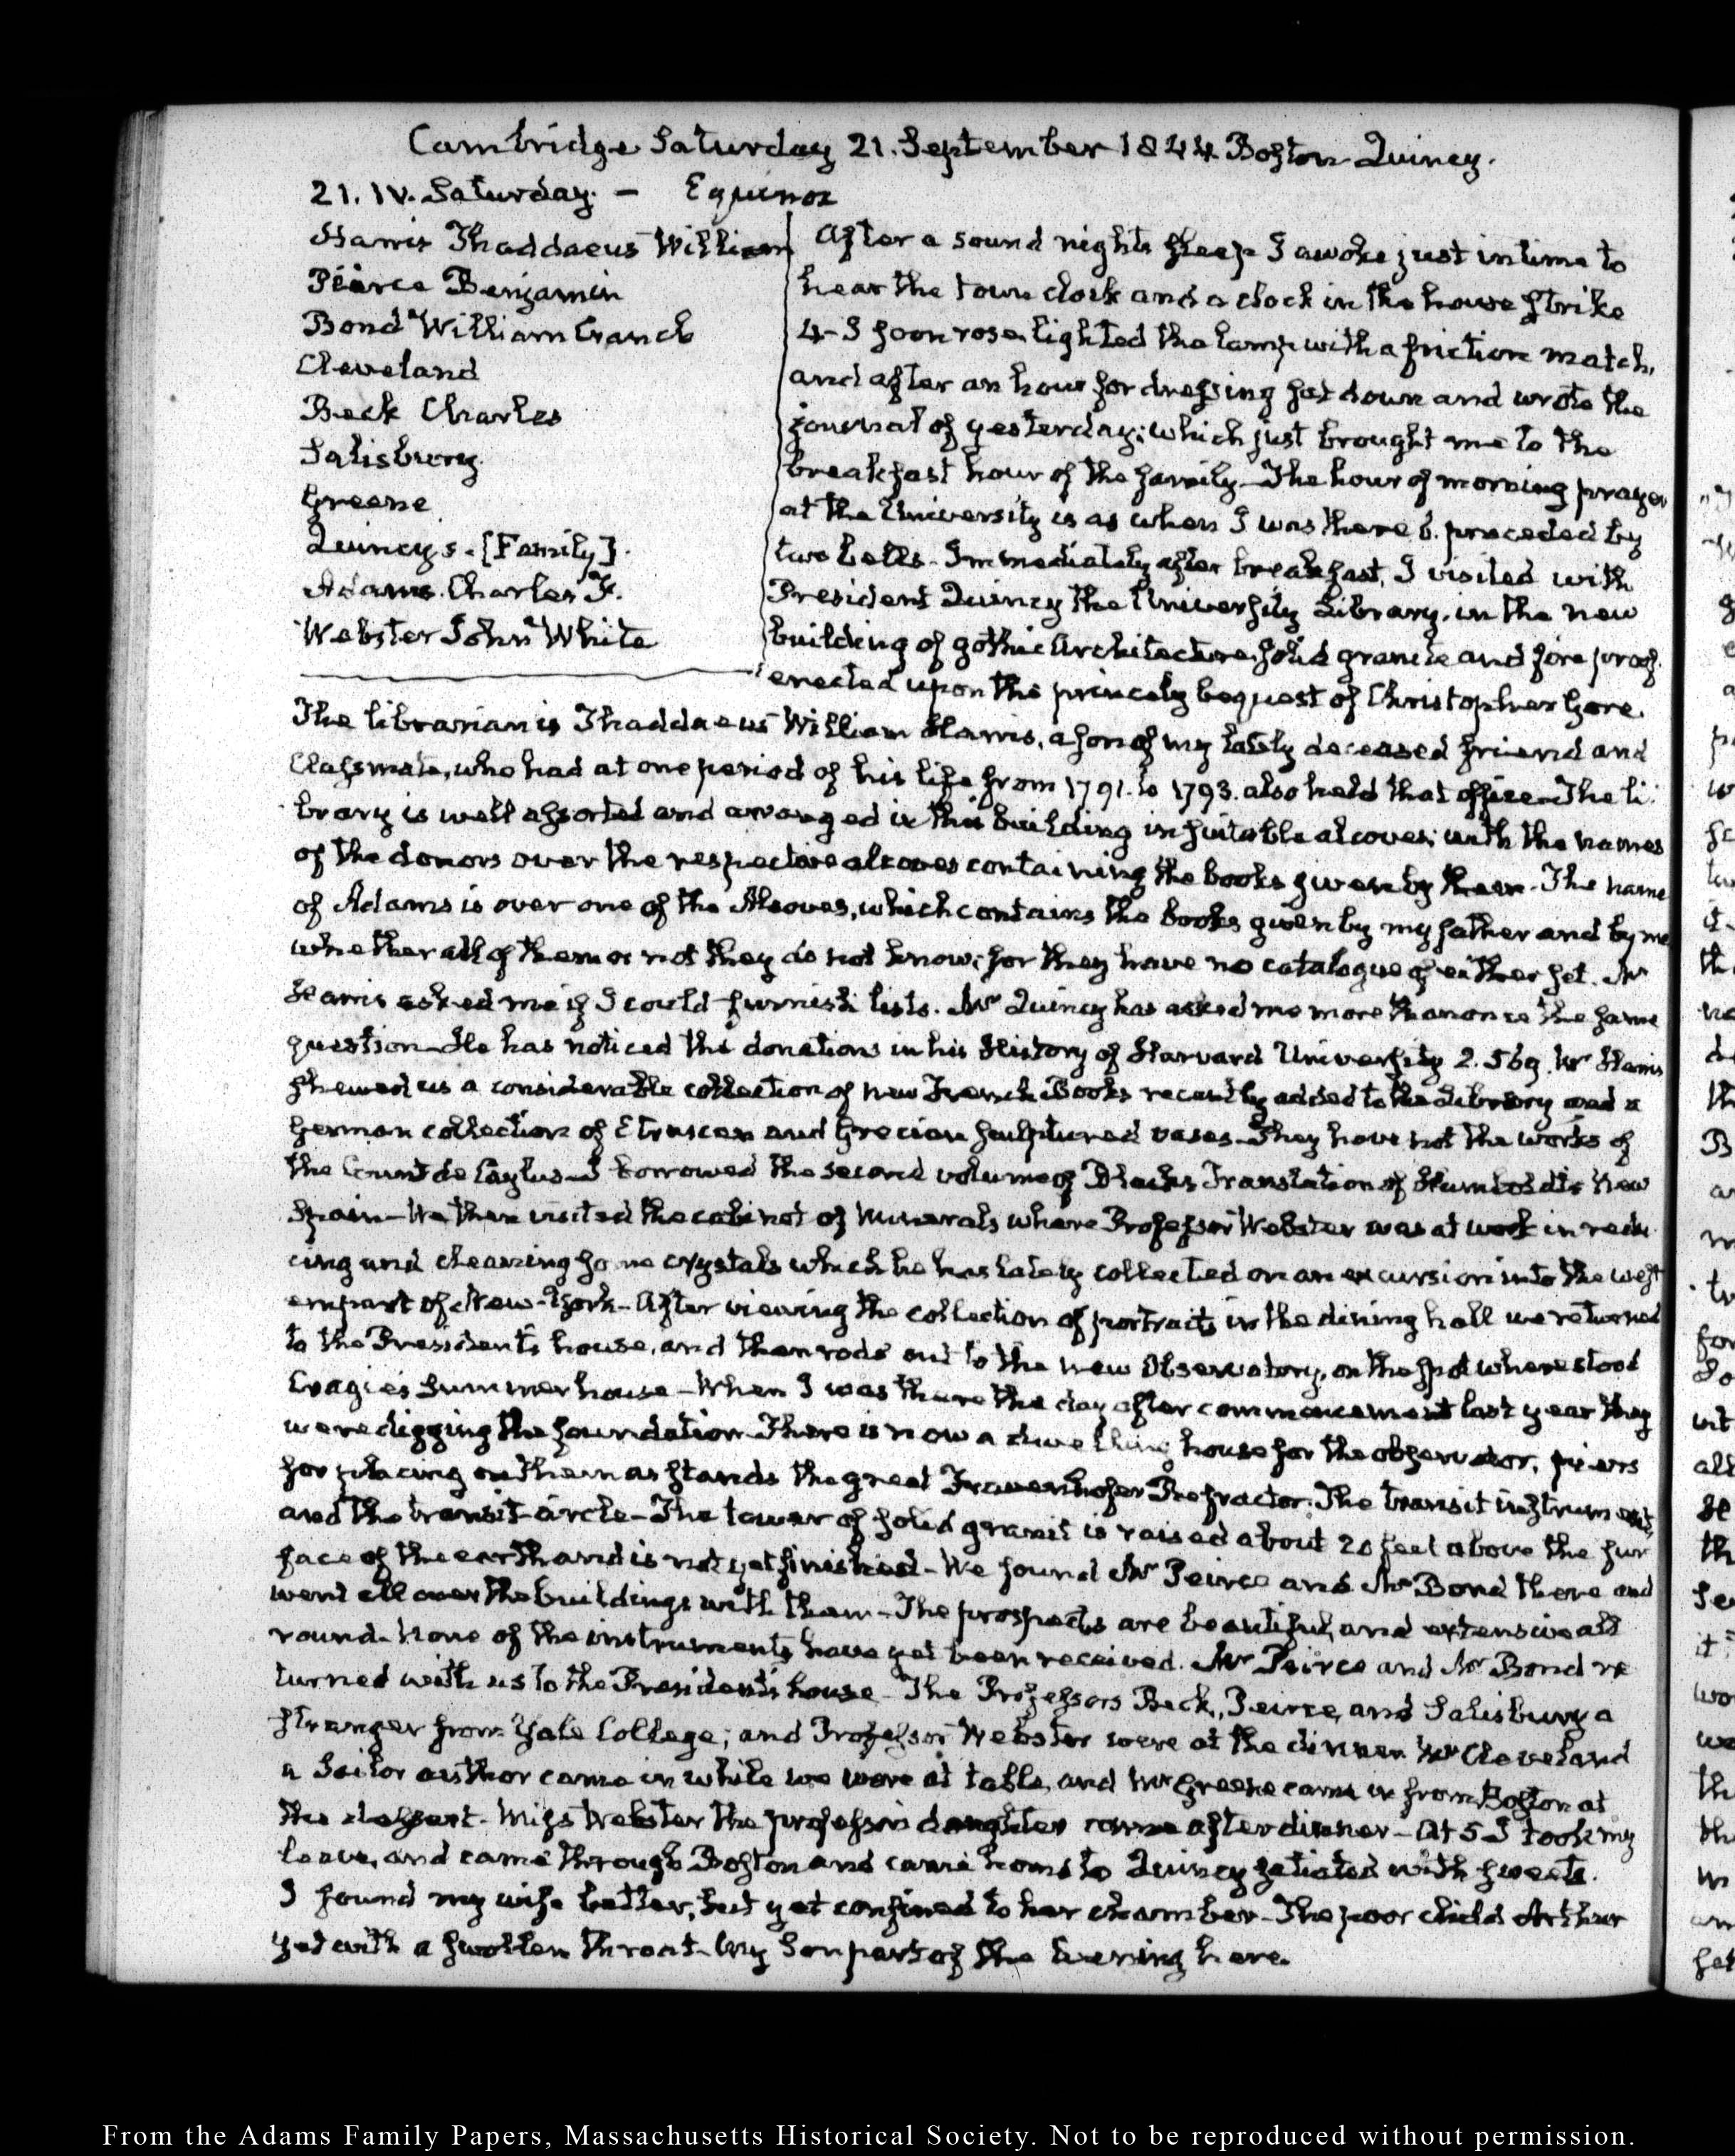 Cambridge Saturday 21. September 1844. Boston Quincy.
21. IV. Saturday. — Equinox
Harris Thaddaeus William
Peirce Benjamin
Bond William Cranch
Cleveland
Beck Charles
Salisbury
Greene
Quincys. [Family].
Adams. Charles F.
Webster John White
After a sound nights sleep I awoke just in time to
hear the town clock and a clock in the house strike
4 - I soon rose lighted the lamp with a friction match,
and after an hour for dressing sat down and wrote the
journal of yesterday; which just brought me to the
breakfast hour of the family - The hour of morning prayer
at the University is as when I was there 6. preceded by
two bells - Immediately after breakfast, I visited with
President Quincy the University Library, in the new
building of gothic Architecture, solid granite and fire proof.
erected upon the princely bequest of Christopher Gore.
The librarian is Thaddaeus William Harris, a son of my lately deceased friend and
Classmate, who had at one period of his life from 1791. to 1793. also held that office - The li
brary is well assorted and arranged in this building in suitable alcoves; with the names
of the donors over the respective alcoves containing the books given by them - The name
of Adams is over one of the Alcoves, which contains the books given by my father and by me
whether all of them or not they do not know; for they have no catalogue of either set. Mr
Harris asked me if I could furnish lists. Mr Quincy has asked me more than once the same
question - He has noticed the donations in his History of Harvard University 2. 569. Mr Harris
shewed us a considerable collection of new French Books recently added to the Library and a
German collection of Etruscan and Grecian sculptured vases - They have not the works of
the Count de Caylus - I borrowed the second volume of Black's Translation of Humboldt's New
Spain - We then visited the cabinet of Minerals where Professor Webster was at work in redu
cing and cleaning some crystals which he has lately collected on an excursion into the west
ern part of New-York - After viewing the collection of portraits in the dining hall we returned
to the President's house, and then rode out to the new Observatory, on the spot where stood
Cragie's Summer house - When I was there the day after commencement last year they
were digging the foundation - There is now a dwelling house for the observator, piers
for placing on them as stands the great Frauenhofer Refractor. The transit instrument,
and the transit-circle - The tower of solid granit is raised about 20 feet above the sur
face of the earth and is not yet finished - We found Mr Peirce and Mr Bond there and
went all over the buildings with them - The prospects are beautiful, and extensive all
round - None of the instruments have yet been received. Mr Peirce and Mr Bond re
turned with us to the President's house - The Professors Beck, Peirce, and Salisbury a
stranger from Yale College; and Professor Webster were at the dinner Mr Cleveland
a Sailor author came in while we were at table, and Mr Greene came in from Boston at
the dessert. Miss Webster the professor's daughter came after dinner - At 5 I took my
leave, and came through Boston and came home to Quincy satiated with sweets.
I found my wife better, but yet confined to her chamber - The poor child Arthur
yet with a swollen throat - My Son part of the Evening here.
From the Adams Family Papers, Massachusetts Historical Society. Not to be reproduced without permission.